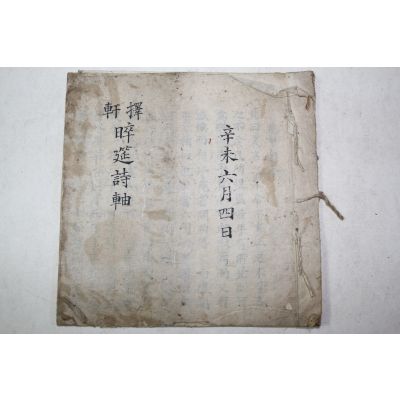 辛未六月四日
擇軒
晬筵詩軸